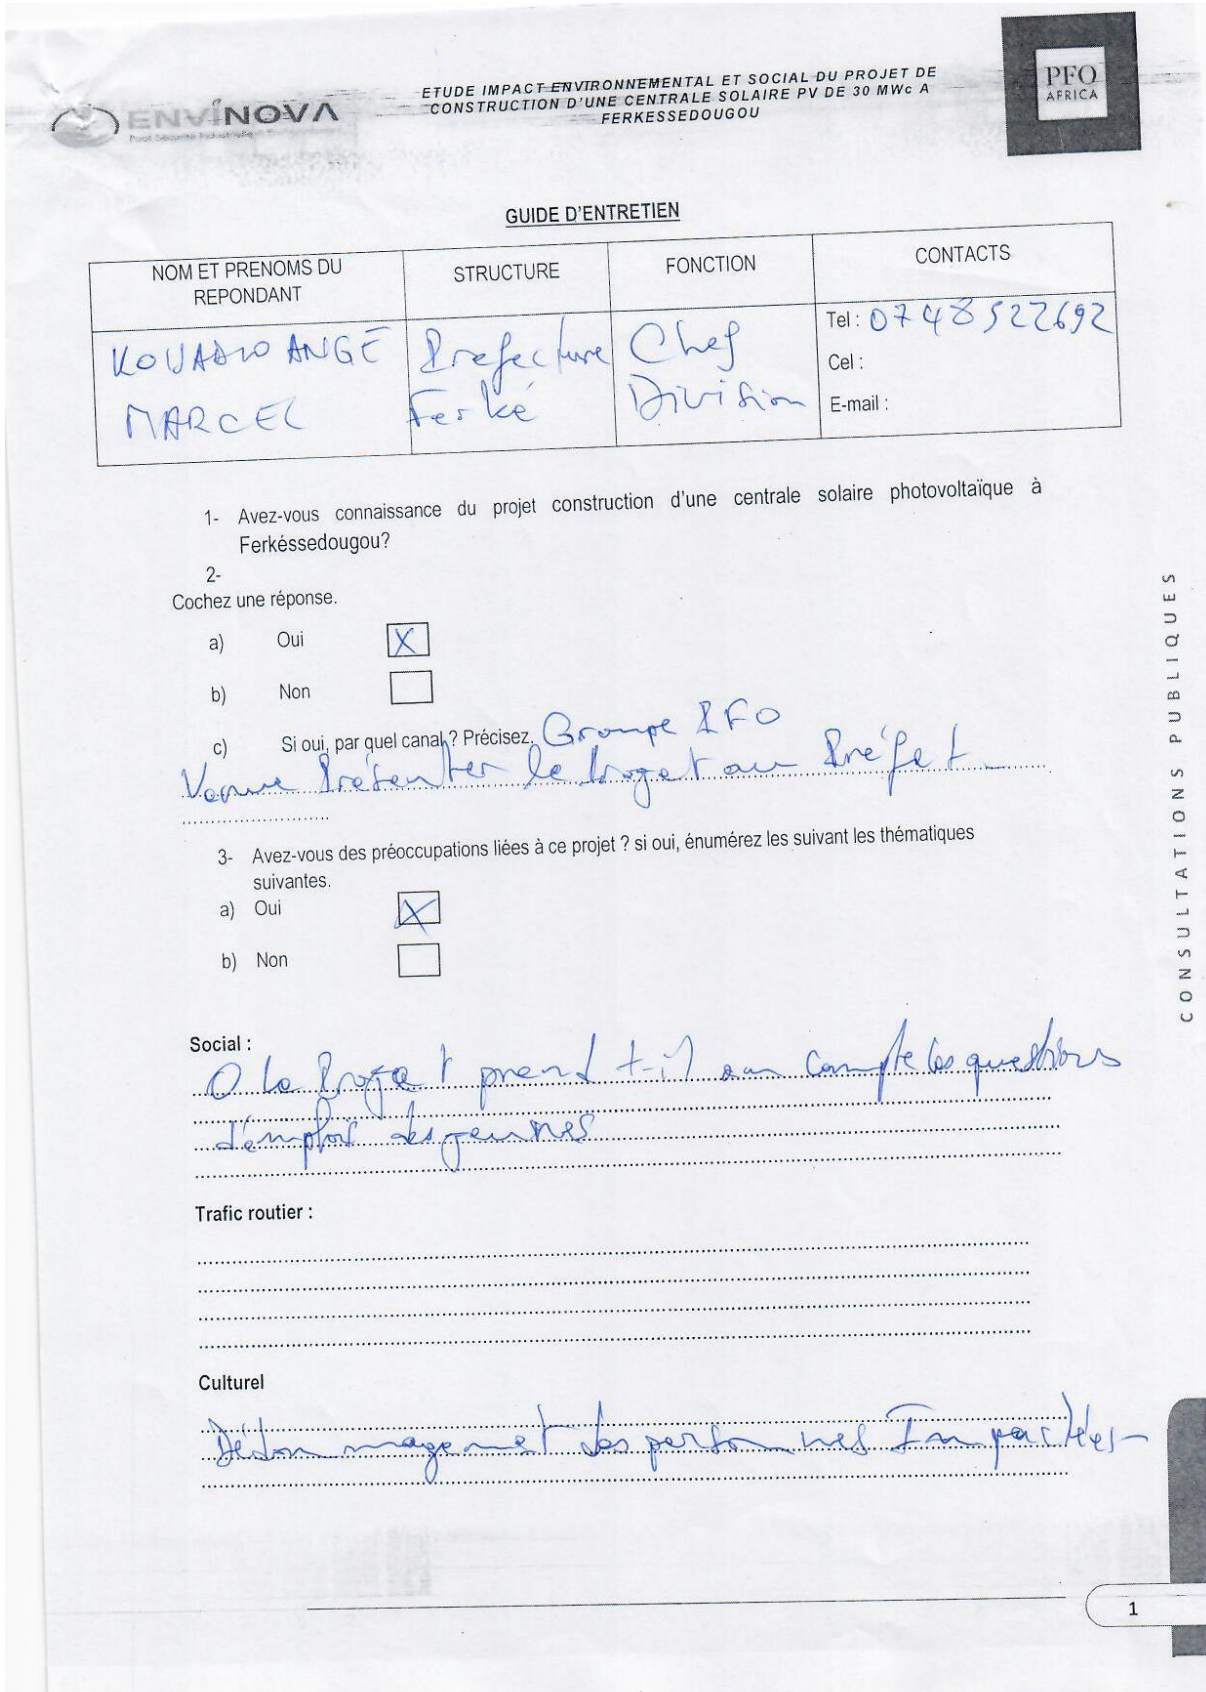 ENVINOVA
ETUDE IMPACT ENVIRONNEMENTAL ET SOCIAL DU PROJET DE
CONSTRUCTION D'UNE CENTRALE SOLAIRE PV DE 30 MWc A
FERKESSEDOUGOU
PFO
AFRICA
GUIDE D'ENTRETIEN
NOM ET PRENOMS DU
REPONDANT
STRUCTURE
FONCTION
CONTACTS
KOUADIO ANGE
MARCEL
Prefecture
Ferké
Chef
Division
Tel : 0748522692
Cel :
E-mail :
1- Avez-vous connaissance du projet construction d'une centrale solaire photovoltaïque à
Ferkéssedougou?
2-
Cochez une réponse.
a) Oui X
b) Non
c) Si oui, par quel canal ? Précisez. Groupe PFO
Venue Présenter le Projet au Préfet
3- Avez-vous des préoccupations liées à ce projet ? si oui, énumérez les suivant les thématiques
suivantes.
a) Oui X
b) Non
Social :
Le Projet prend t-il en compte les questions
d'emplois des jeunes
Trafic routier :
Culturel
Dédommagement des personnes Impactées -
CONSULTATIONS PUBLIQUES
1